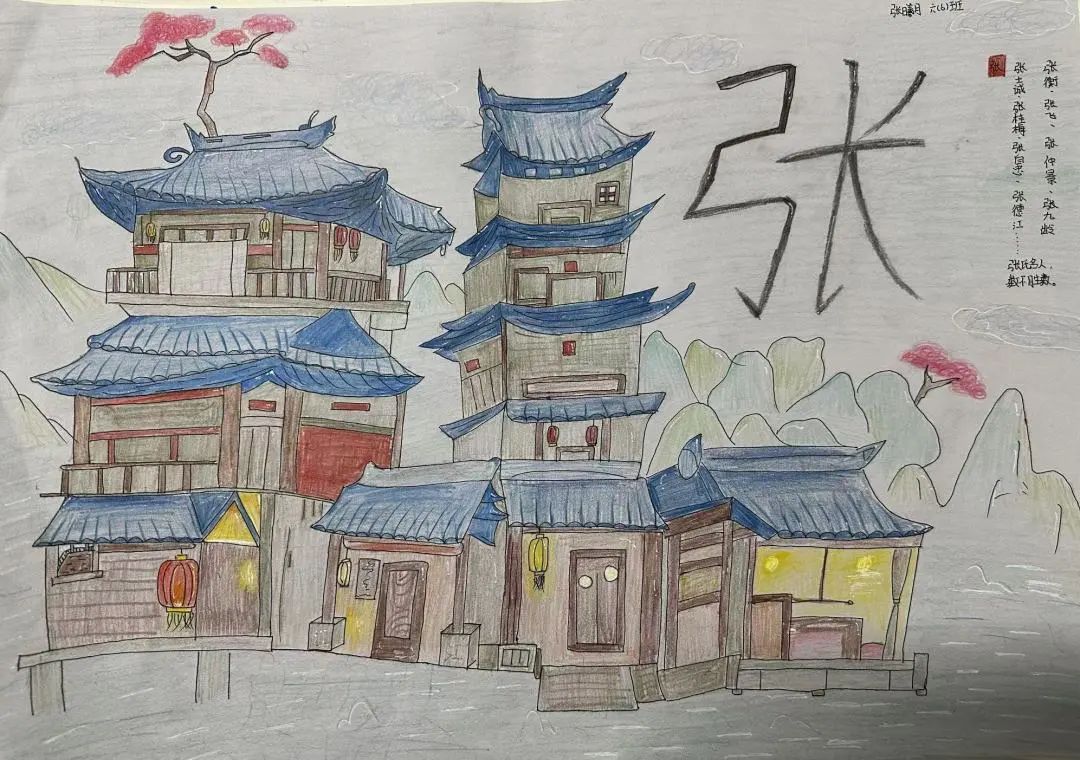 张曦月 六(6)班
张
张
张衡、张飞、张仲景、张九龄
张士诚、张桂梅、张自忠、张德江……
张氏名人，
数不胜数。